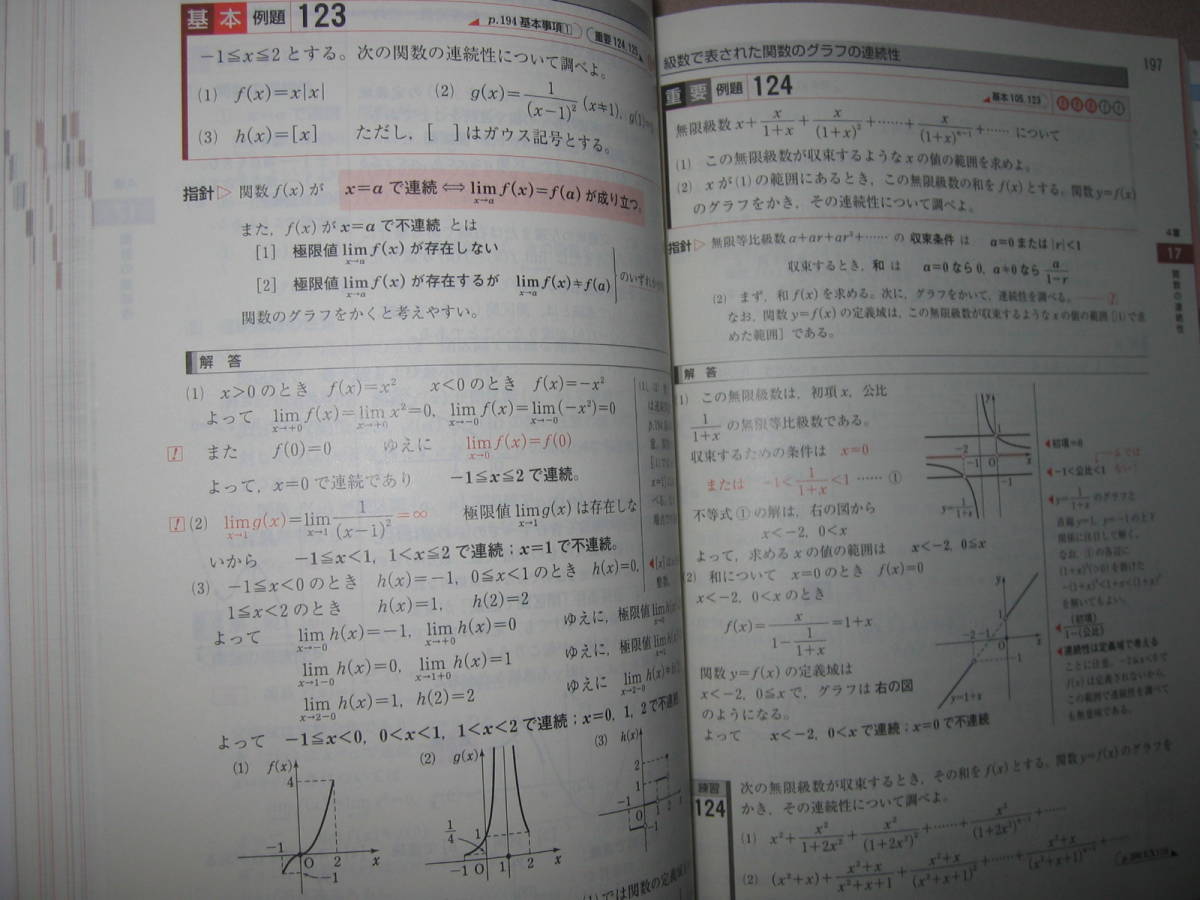 基本 例題 123
p.194 基本事項1
重要 124, 125
−1≦x≦2とする。次の関数の連続性について調べよ。
(1) f(x)=x|x| (2) g(x)=1/(x−1)² (x≠1), g(1)=
(3) h(x)=[x] ただし，[ ]はガウス記号とする。
指針▷ 関数 f(x) が x=a で連続 ⟺ lim_{x→a} f(x)=f(a) が成り立つ。
また，f(x) が x=a で不連続 とは
[1] 極限値 lim_{x→a} f(x) が存在しない
[2] 極限値 lim_{x→a} f(x) が存在するが lim_{x→a} f(x)≠f(a)
のいずれか
関数のグラフをかくと考えやすい。
解答
(1) x>0のとき f(x)=x² x<0のとき f(x)=−x²
よって lim_{x→+0} f(x)=lim_{x→+0} x²=0, lim_{x→−0} f(x)=lim_{x→−0}(−x²)=0
! また f(0)=0 ゆえに lim_{x→0} f(x)=f(0)
よって，x=0で連続であり −1≦x≦2で連続。
! (2) lim_{x→1} g(x)=lim_{x→1} 1/(x−1)²=∞ 極限値 lim_{x→1} g(x) は存在しな
いから −1≦x<1, 1<x≦2で連続；x=1で不連続。
(3) −1≦x<0のとき h(x)=−1, 0≦x<1のとき h(x)=0,
1≦x<2のとき h(x)=1, h(2)=2
よって lim_{x→−0} h(x)=−1, lim_{x→+0} h(x)=0 ゆえに，極限値 lim_{x→0}
lim_{x→1−0} h(x)=0, lim_{x→1+0} h(x)=1 ゆえに，極限値 lim_{x→1}
lim_{x→2−0} h(x)=1, h(2)=2 ゆえに lim_{x→2−0} h(x)≠
よって −1≦x<0, 0<x<1, 1<x<2で連続；x=0, 1, 2で不連続
(1) f(x) 4 −1 O 2 x −1
(2) g(x) 1/4 1 −1 O 1 2 x
(3) h(x) 2 1 −1 O 1 2 x −1
(1)では関数の定義域
級数で表された関数のグラフの連続性
197
重要 例題 124
基本 105, 123
無限級数 x+x/(1+x)+x/(1+x)²+……+x/(1+x)ⁿ⁻¹+…… について
(1) この無限級数が収束するような x の値の範囲を求めよ。
(2) x が(1)の範囲にあるとき，この無限級数の和を f(x) とする。関数 y=f(x)
のグラフをかき，その連続性について調べよ。
指針▷ 無限等比級数 a+ar+ar²+…… の 収束条件 は a=0 または |r|<1
収束するとき，和 は a=0 なら 0, a≠0 なら a/(1−r)
(2) まず，和 f(x) を求める。次に，グラフをかいて，連続性を調べる。……!
なお，関数 y=f(x) の定義域は，この無限級数が収束するような x の値の範囲 [(1)で求
めた範囲] である。
4章
17
関数の連続性
解答
1) この無限級数は，初項 x，公比
1/(1+x) の無限等比級数である。
収束するための条件は x=0
または −1<1/(1+x)<1 ……①
不等式①の解は，右の図から
x<−2, 0<x
よって，求める x の値の範囲は x<−2, 0≦x
y 1 −2 −1 O x −1 y=1/(1+x)
◀初項=0
◀−1<公比<1
◀y=1/(1+x) のグラフと
直線 y=1, y=−1 の上下
関係に注目して解く。
なお，①の各辺に
(1+x)²(>0) を掛けた
−(1+x)²<1+x<(1+x)²
を解いてもよい。
(2) 和について x=0のとき f(x)=0
x<−2, 0<xのとき
f(x)=x/(1−1/(1+x))=1+x
関数 y=f(x) の定義域は
x<−2, 0≦x で，グラフは右の図
のようになる。
よって x<−2, 0<xで連続；x=0で不連続
y 1 −2 −1 O x −1 y=1+x
◀(初項)/(1−(公比))
◀連続性は定義域で考える
ことに注意。−2≦x<0で
f(x) は定義されないから，
この範囲で連続性を調べて
も無意味である。
練習 124
次の無限級数が収束するとき，その和を f(x) とする。関数 y=f(x) のグラフを
かき，その連続性について調べよ。
(1) x²+x²/(1+2x²)+x²/(1+2x²)²+……+x²/(1+2x²)ⁿ⁻¹+……
(2) (x²+x)+(x²+x)/(x²+x+1)+(x²+x)/(x²+x+1)²+……+(x²+x)/(x²+x+1)ⁿ⁻¹+……